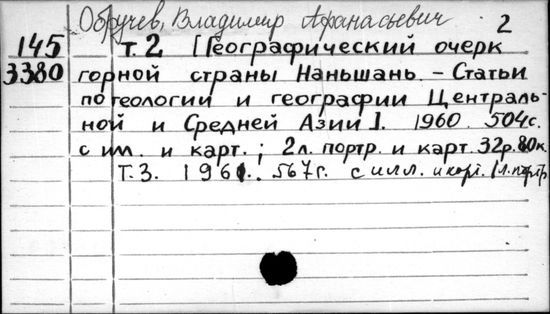 Обручев, Владимир Афанасьевич 2
145 т. 2 [Географический очерк
3380 горной страны Наньшань. – Статьи
по геологии и географии Централь-
ной и Средней Азии]. 1960. 504с.
с ил. и карт.; 2л. портр. и карт. 32р. 80к.
Т. 3. 1961. 567с. с илл. и карт. 1 л. портр.